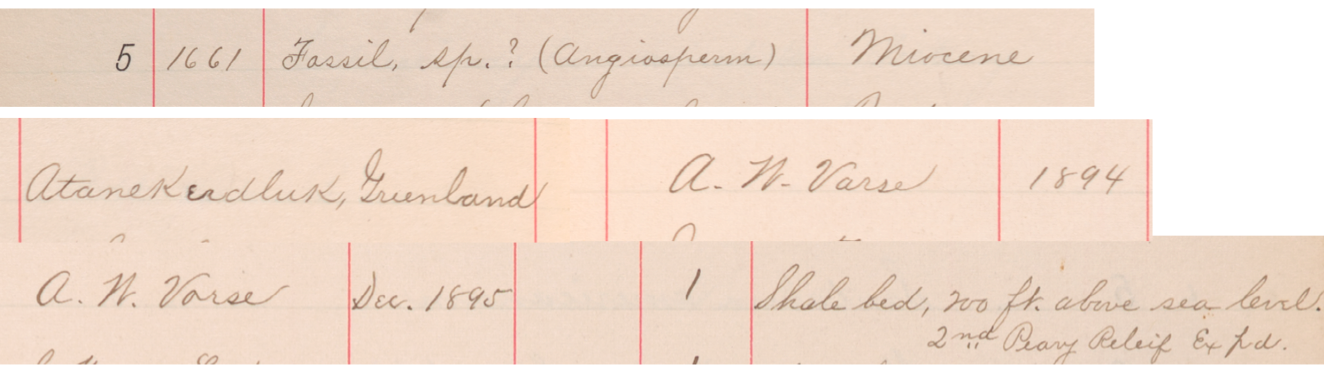 5 1661 Fossil, sp.? (Angiosperm) Miocene
Atanekerdluk, Greenland A. W. Vorse 1894
A. W. Vorse Dec. 1895 1 Shale bed, 200 ft. above sea level.
2nd Peary Releif Exp'd.